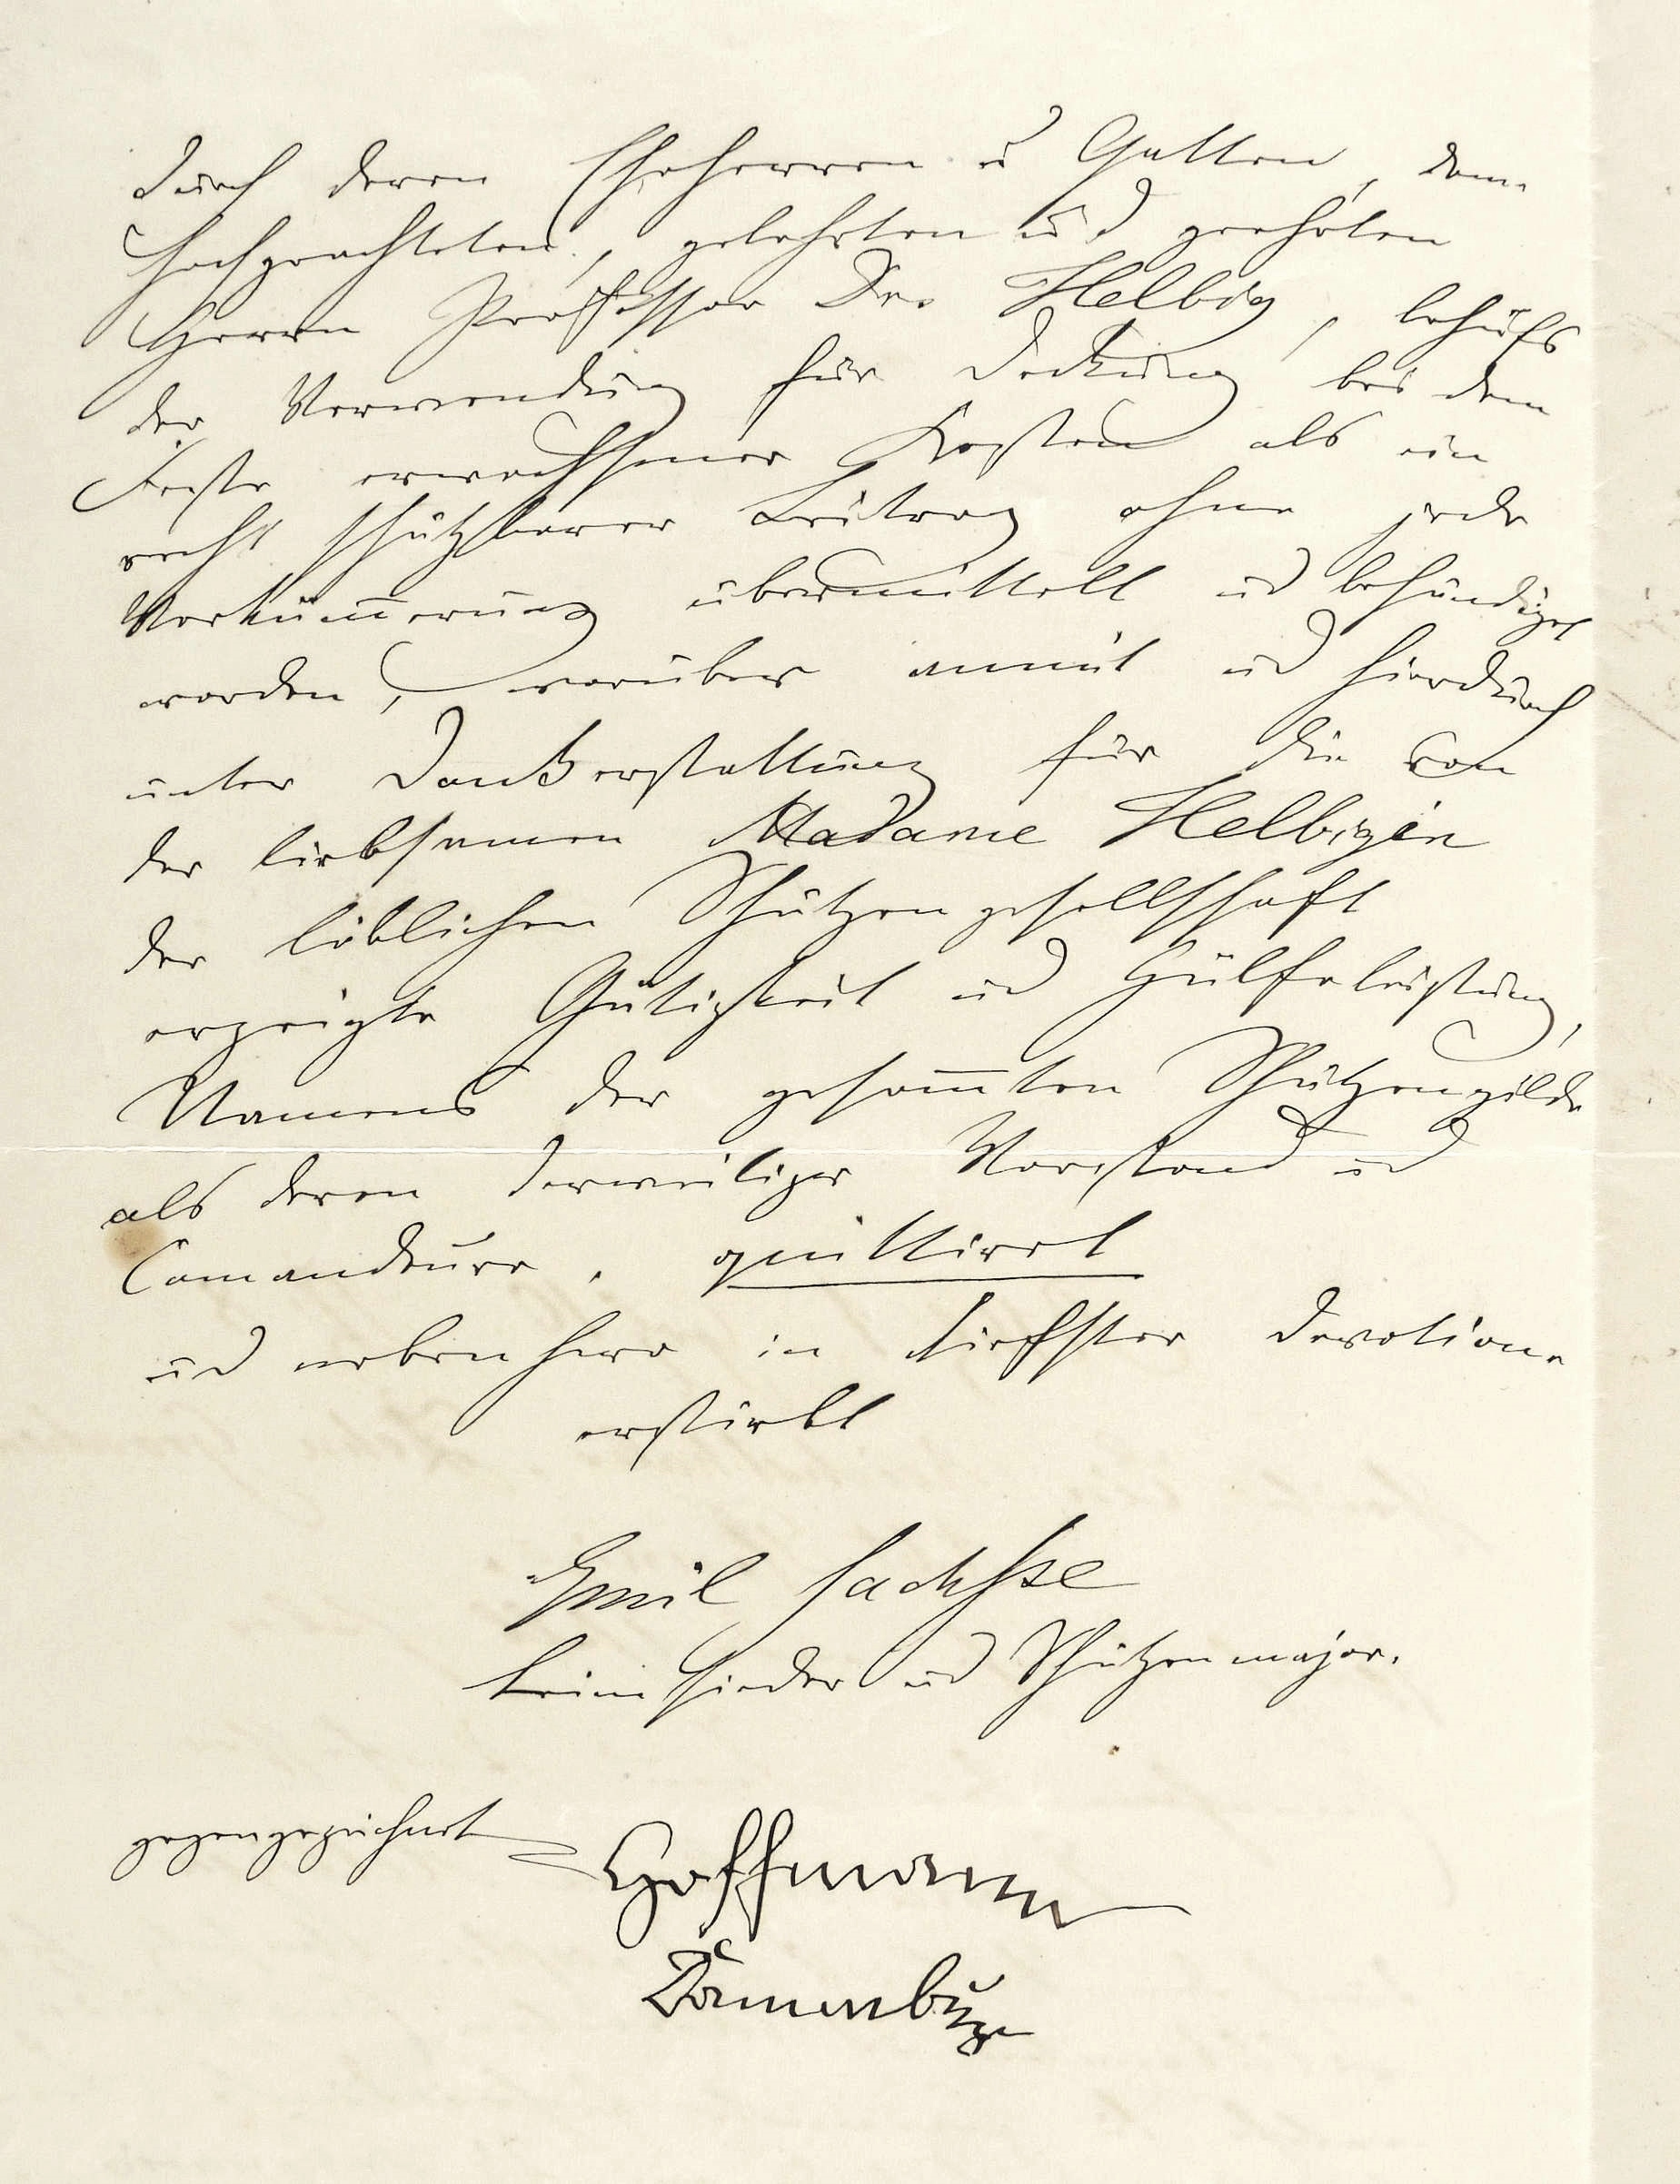 durch deren Eheherren u Gatten, dem
hochgeachteten, gelehrten und geehrten
Herrn Professor Dr. Helbig, behufs
der Verwendung für Deckung bei dem
Feste erwachsener Kosten als ein
recht schätzbarer Beitrag ohne jede
Verkümerung übermittelt und behändiget
worden, worüber anmit und hierdurch
unter Dankerstattung für die von
der liebsamen Madame Helbigin
der löblichen Schützengesellschaft
erzeigte Gütigkeit und Hülfeleistung,
Namens der gesamten Schützengilde
als deren derweiliger Vorstand und
Comandeure. quittiret
und nebenhero in tiefster Devotion
erstirbt
Emil Sachsse
Leimsieder und Schützenmajor.
gegengezeichnet Hoffmann